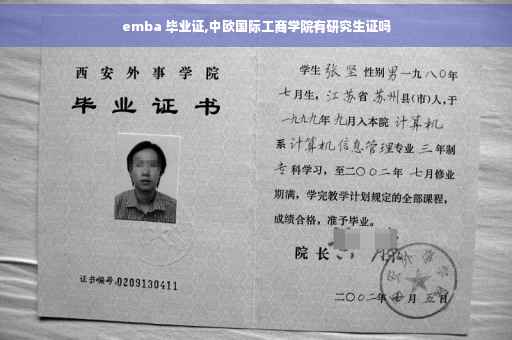 emba 毕业证,中欧国际工商学院有研究生证吗
西安外事学院
毕业证书
证书编号:0209130411
学生 张坚 性别 男 一九八〇年
七月生, 江苏省 苏州 县(市)人,于
一九九九年 九月入本院 计算机
系 计算机信息管理 专业 三 年制
专科学习，至二〇〇二年 七月修业
期满，学完教学计划规定的全部课程，
成绩合格，准予毕业。
院长
二〇〇二年 月 五日